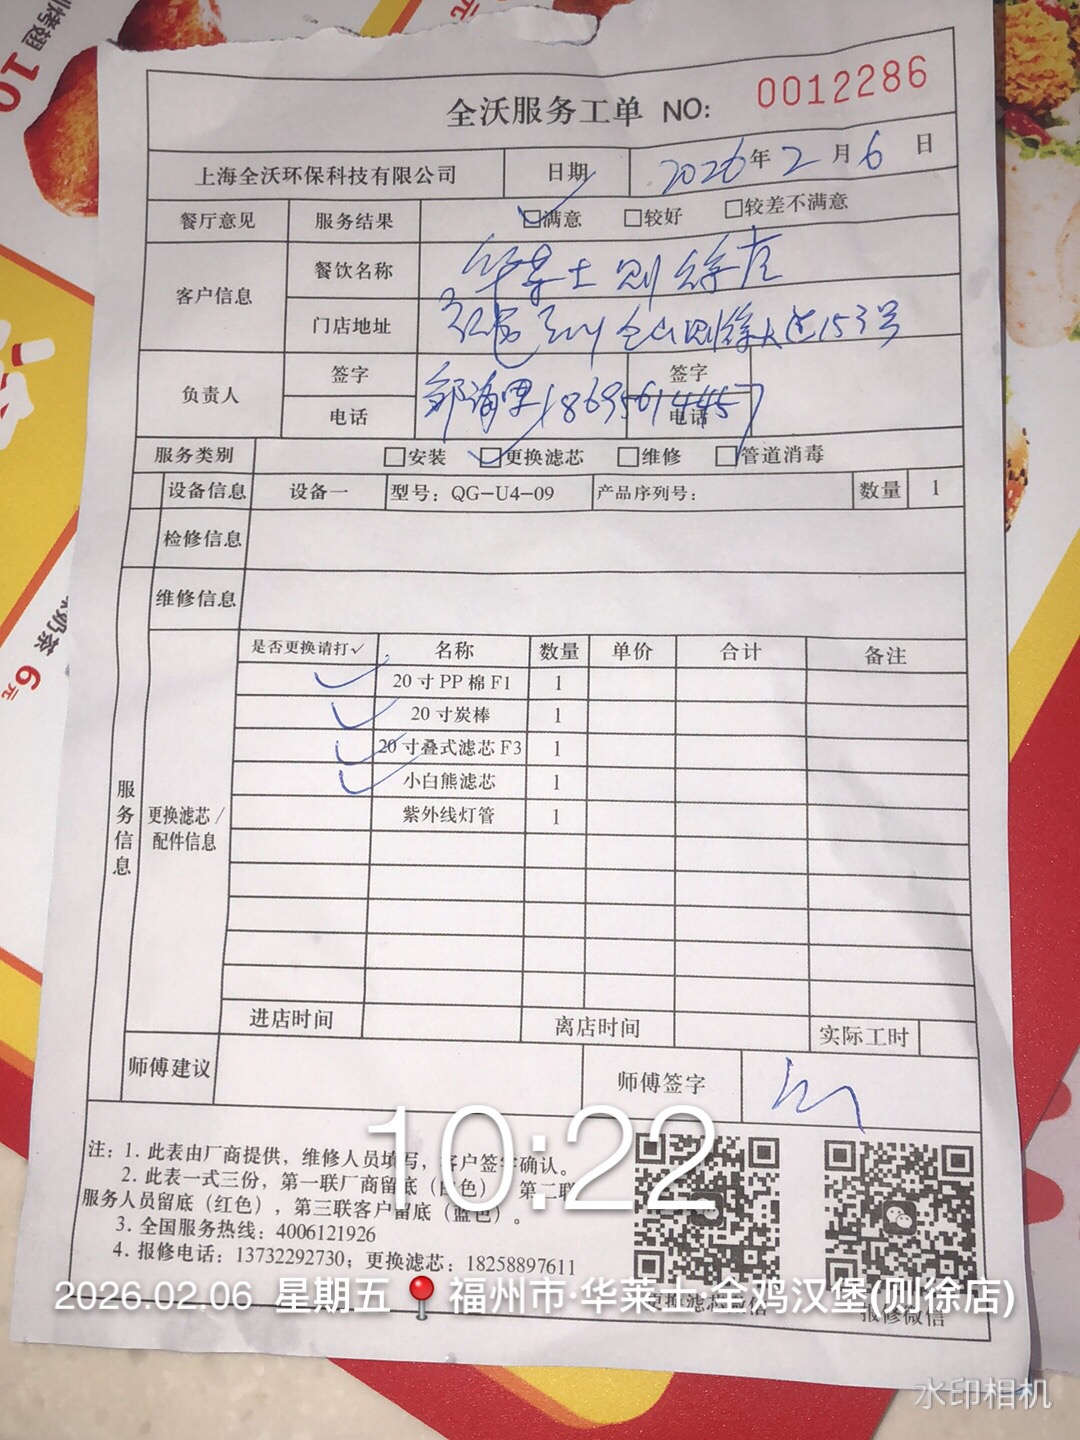 烤翅 10
元
全沃服务工单 NO: 0012286
上海全沃环保科技有限公司 日期 2026年2月6日
餐厅意见 服务结果 满意 较好 较差不满意
客户信息 餐饮名称 华莱士则徐店
门店地址 仓山则徐大道153号
负责人 签字 签字
电话 电话
服务类别 安装 更换滤芯 维修 管道消毒
设备信息 设备一 型号：QG-U4-09 产品序列号： 数量 1
检修信息
维修信息
服务信息
更换滤芯/配件信息
是否更换请打✓ 名称 数量 单价 合计 备注
✓ 20寸PP棉F1 1
✓ 20寸炭棒 1
✓ 20寸叠式滤芯F3 1
✓ 小白熊滤芯 1
紫外线灯管 1
进店时间 离店时间 实际工时
师傅建议 师傅签字
注：1. 此表由厂商提供，维修人员填写，客户签字确认。
2. 此表一式三份，第一联厂商留底（白色） 第二联
服务人员留底（红色），第三联客户留底（蓝色）。
3. 全国服务热线：4006121926
4. 报修电话：13732292730；更换滤芯：18258897611
更换滤芯微信 报修微信
奶茶 6元
10:22
2026.02.06 星期五 福州市·华莱士·全鸡汉堡(则徐店)
水印相机